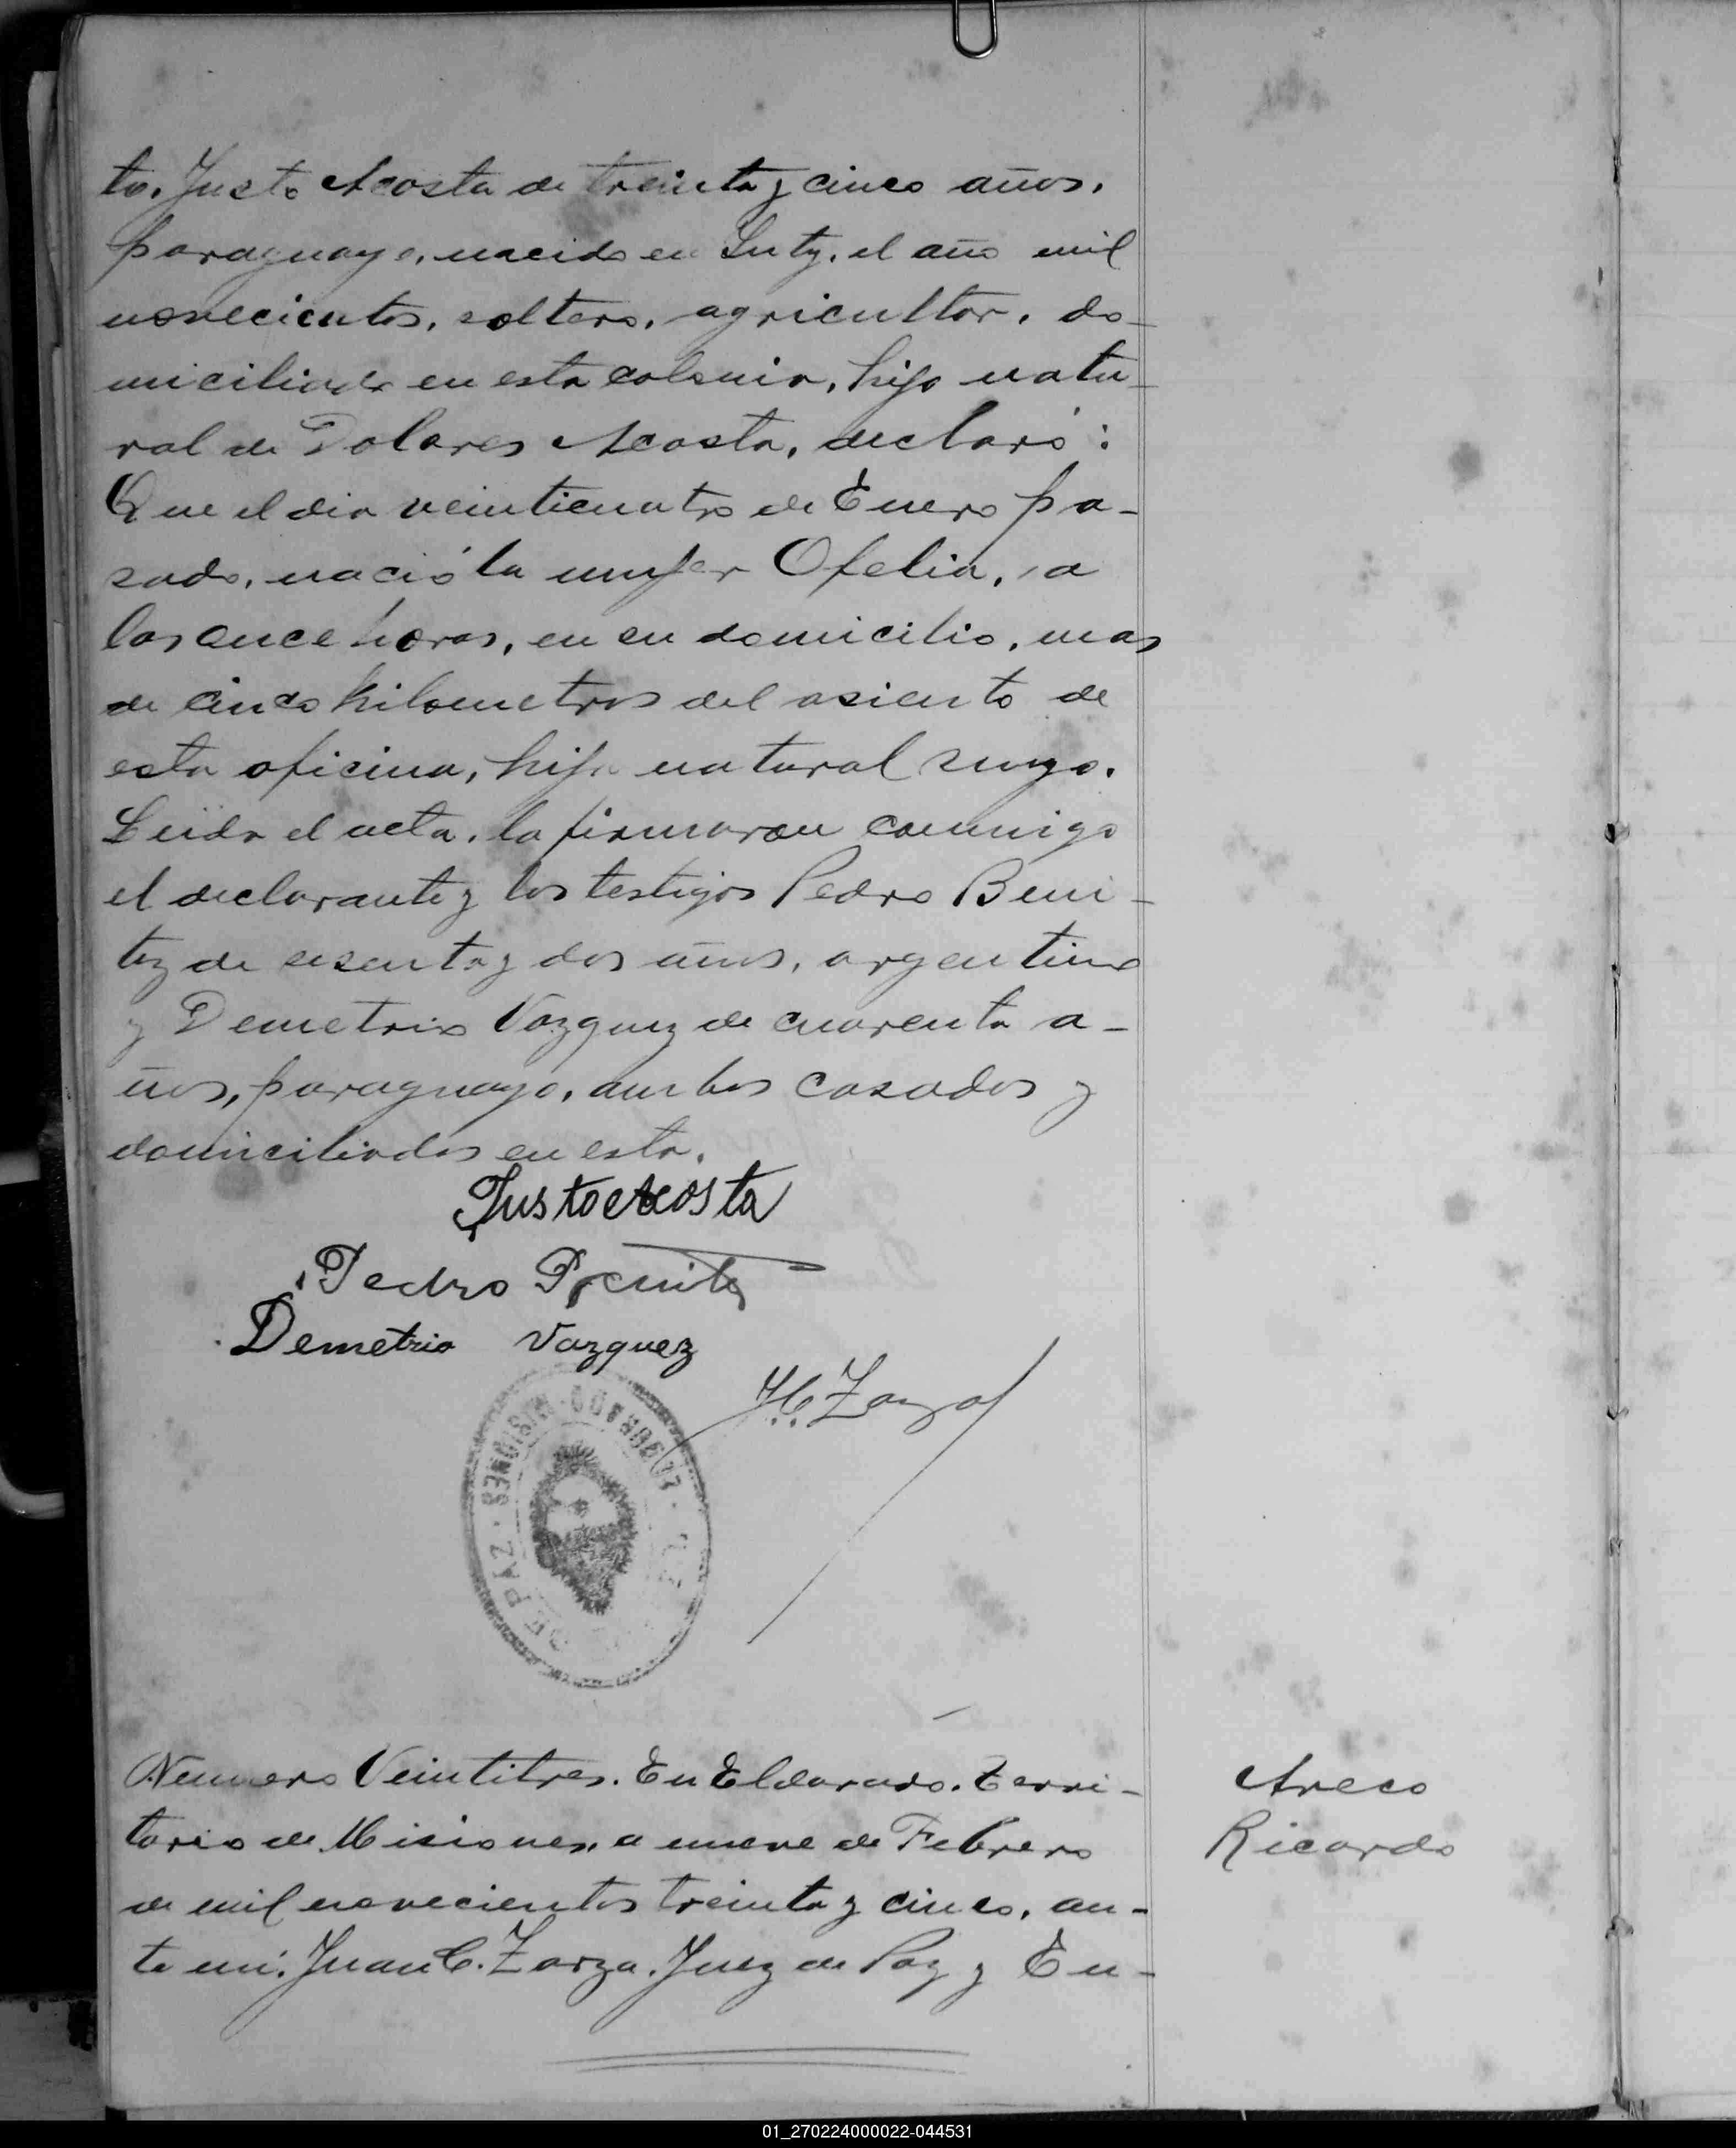 to. Justo Acosta de treinta y cinco años,
paraguayo, nacido en Yuty, el año mil
novecientos, soltero, agricultor, do-
miciliado en esta colonia, hijo natu-
ral de Dolores Acosta, declaró:
Que el dia veinticuatro de Enero pa-
sado, nació la mujer Ofelia, a
las once horas, en su domicilio, mas
de cinco kilometros del asiento de
esta oficina, hija natural suya.
Leida el acta, la firmaron conmigo
el declarante y los testigos Pedro Beni-
tez de sesenta y dos años, argentino
y Demetrio Vazquez de cuarenta a-
ños, paraguayo, ambos casados y
domiciliados en esta.
Justo Acosta
Pedro Benitez
Demetrio Vazquez
J.C. Zarza
DE PAZ · MISIONES
Numero Veintitres. En Eldorado. Terri-
torio de Misiones, a nueve de Febrero
de mil novecientos treinta y cinco, an-
te mi: Juan C. Zarza. Juez de Paz y En-
Areco
Ricardo
01_270224000022-044531